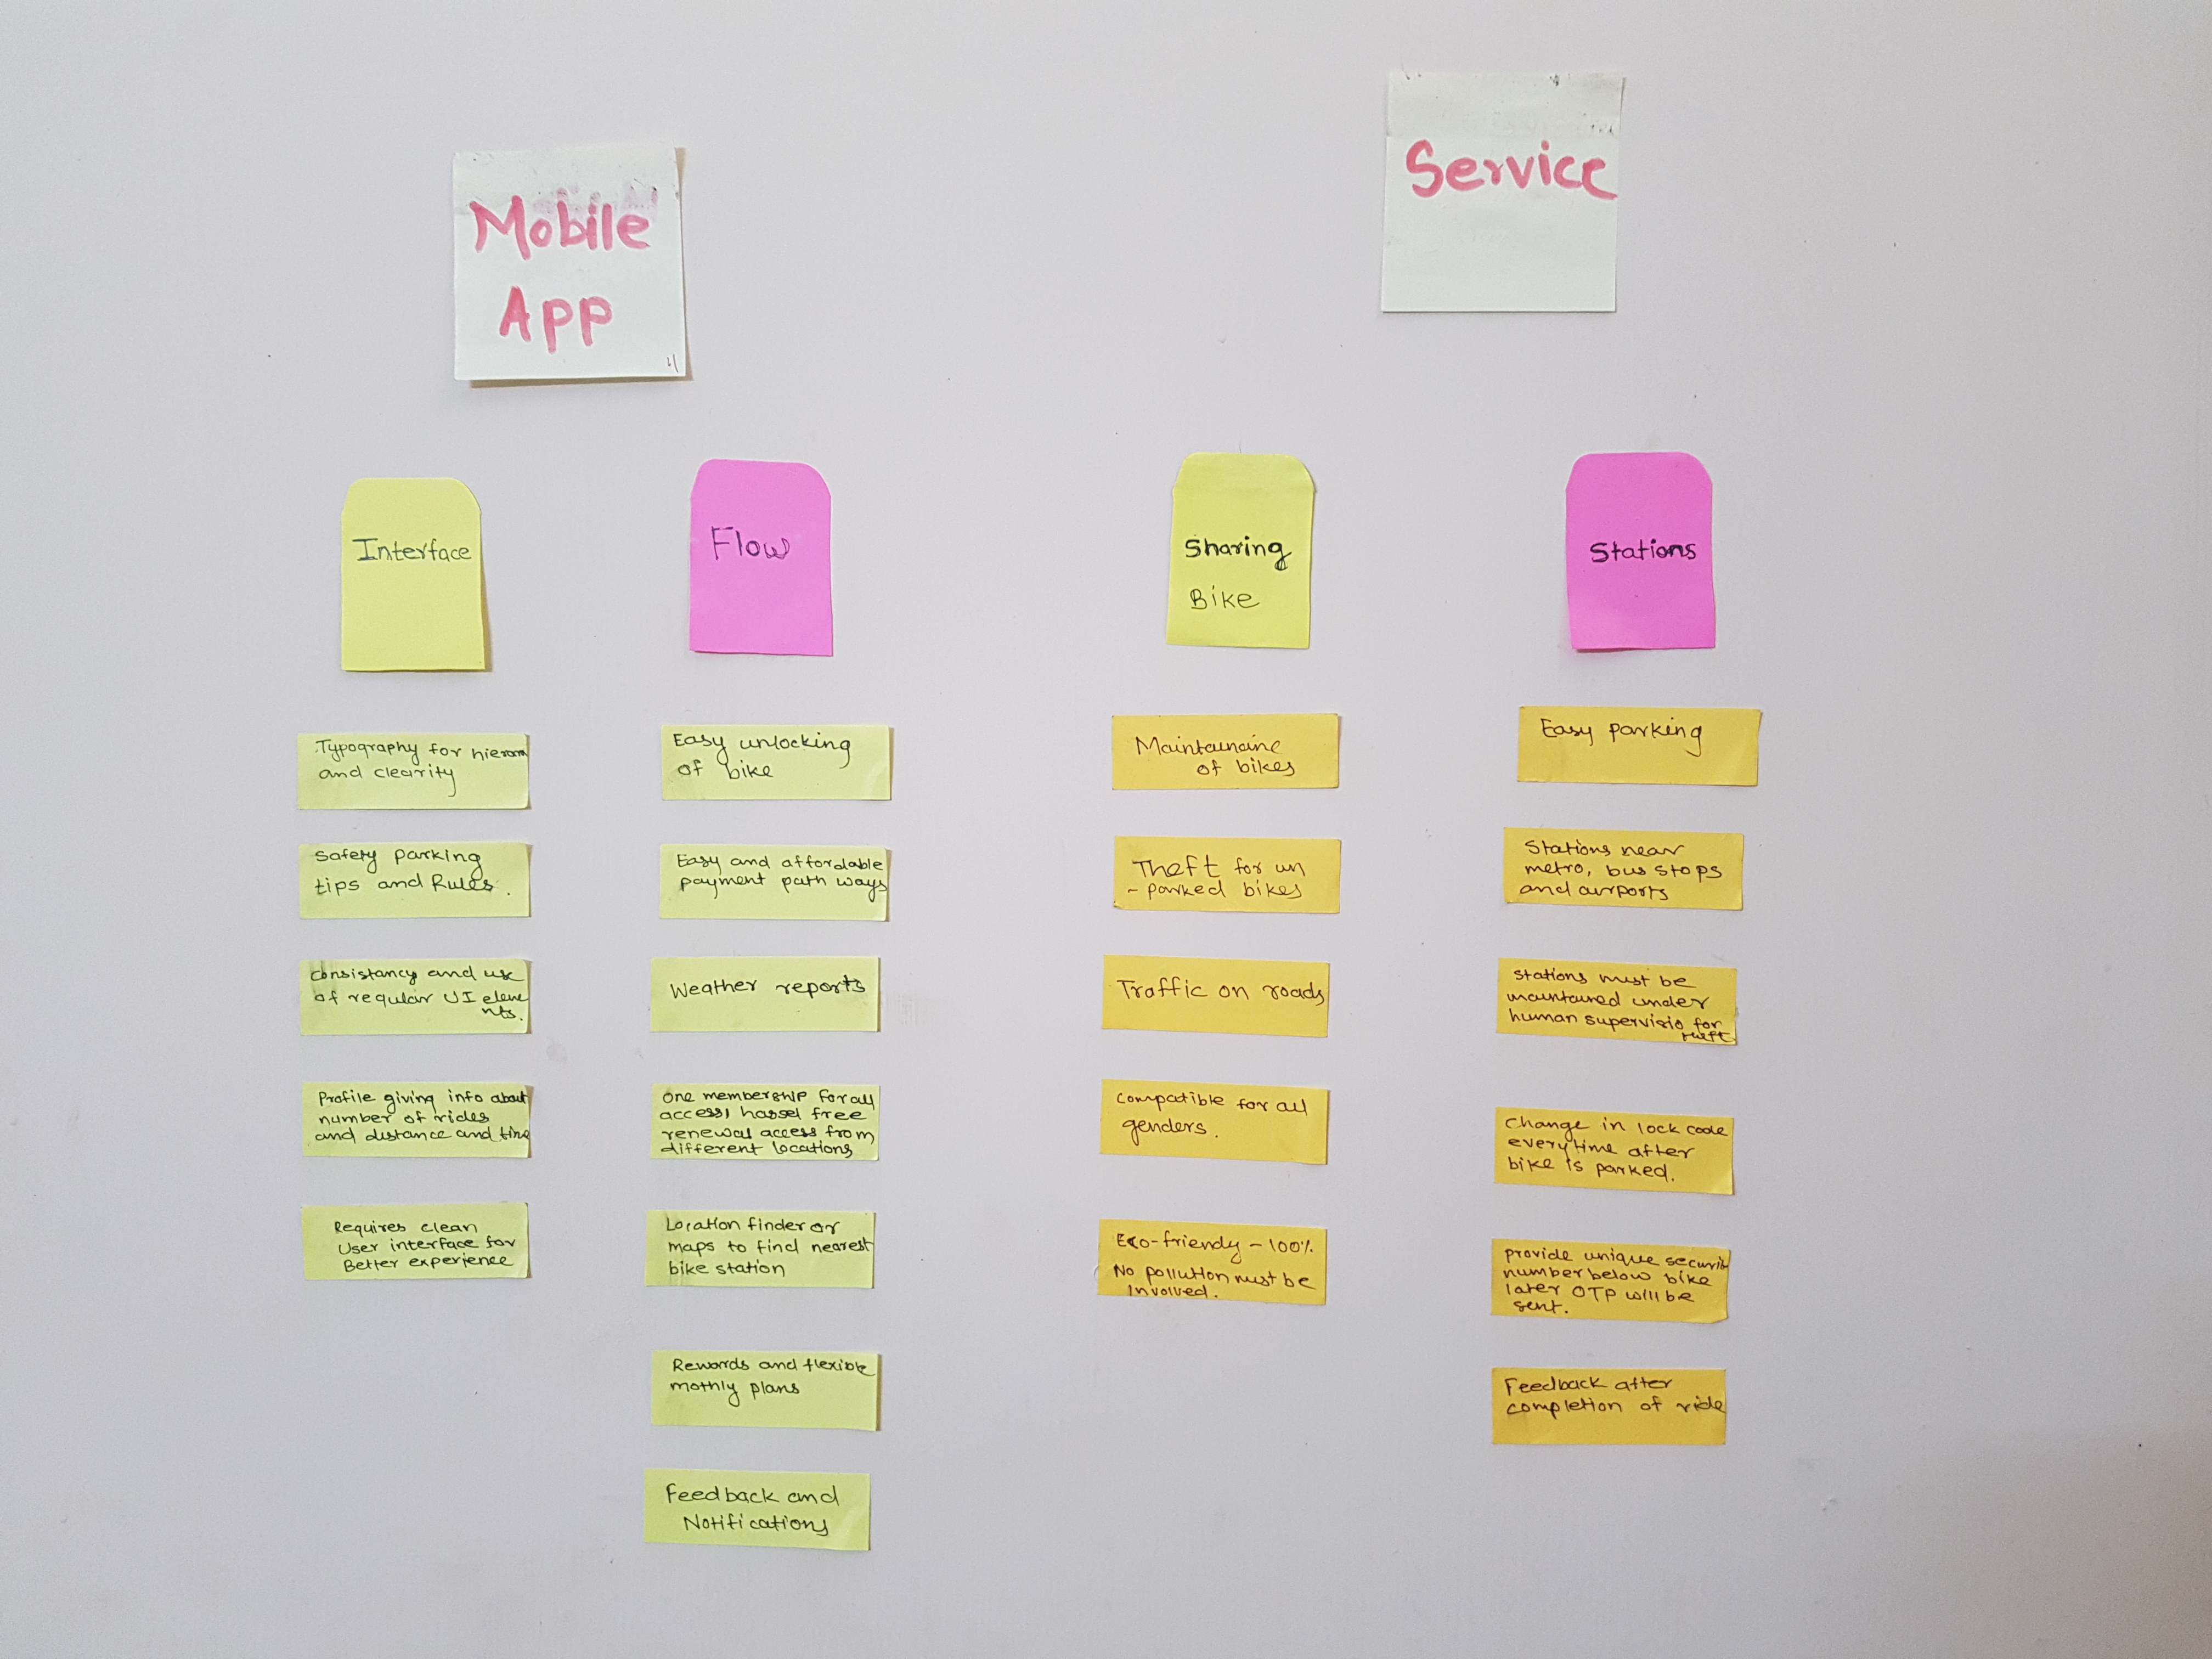 Mobile
App
Service
Interface
Typography for hierar
and clearity
Safety parking
tips and Rules.
consistancy and use
of regular UI eleme
nts.
Profile giving info about
number of rides
and distance and time
Requires clean
User interface for
Better experience
Flow
Easy unlocking
of bike
Easy and affordable
payment path ways
Weather reports
one membership for all
access, hassel free
renewal access from
different locations
Location finder or
maps to find nearest
bike station
Rewards and flexible
mothly plans
Feedback and
Notifications
Sharing
Bike
Maintainaine
of bikes
Theft for un
- parked bikes
Traffic on roads
compatible for all
genders.
Eco-friendly - 100%
No pollution must be
Involved.
Stations
Easy parking
Stations near
metro, bus stops
and airports
stations must be
maintained under
human supervisio for
theft
change in lock code
everytime after
bike is parked.
provide unique securit
number below bike
later OTP will be
sent.
Feedback after
completion of ride